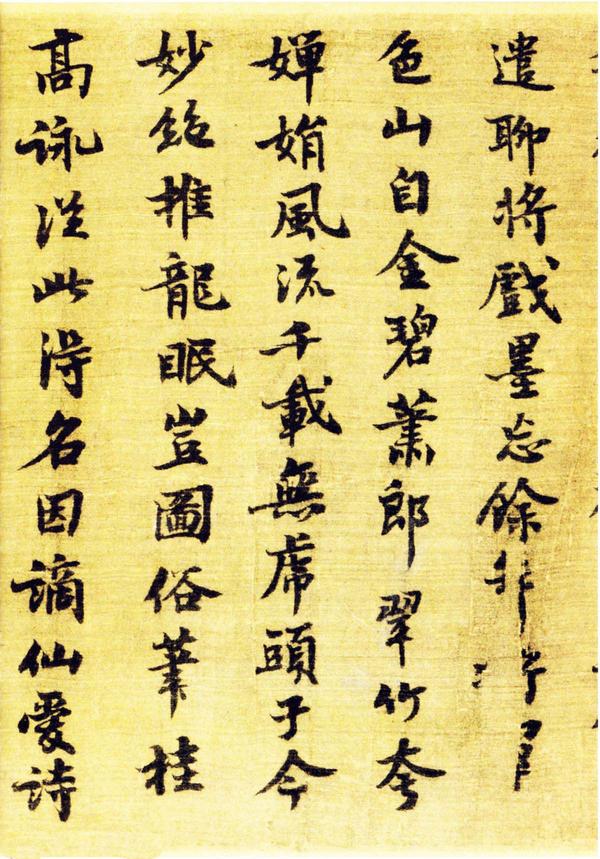 遣聊將戲墨忘餘非
色山自金碧蕭郎翠竹夸
嬋娟風流千載無虎頭于今
妙絶推龍眠豈圖俗筆挂
高詠從此得名因謫仙愛詩